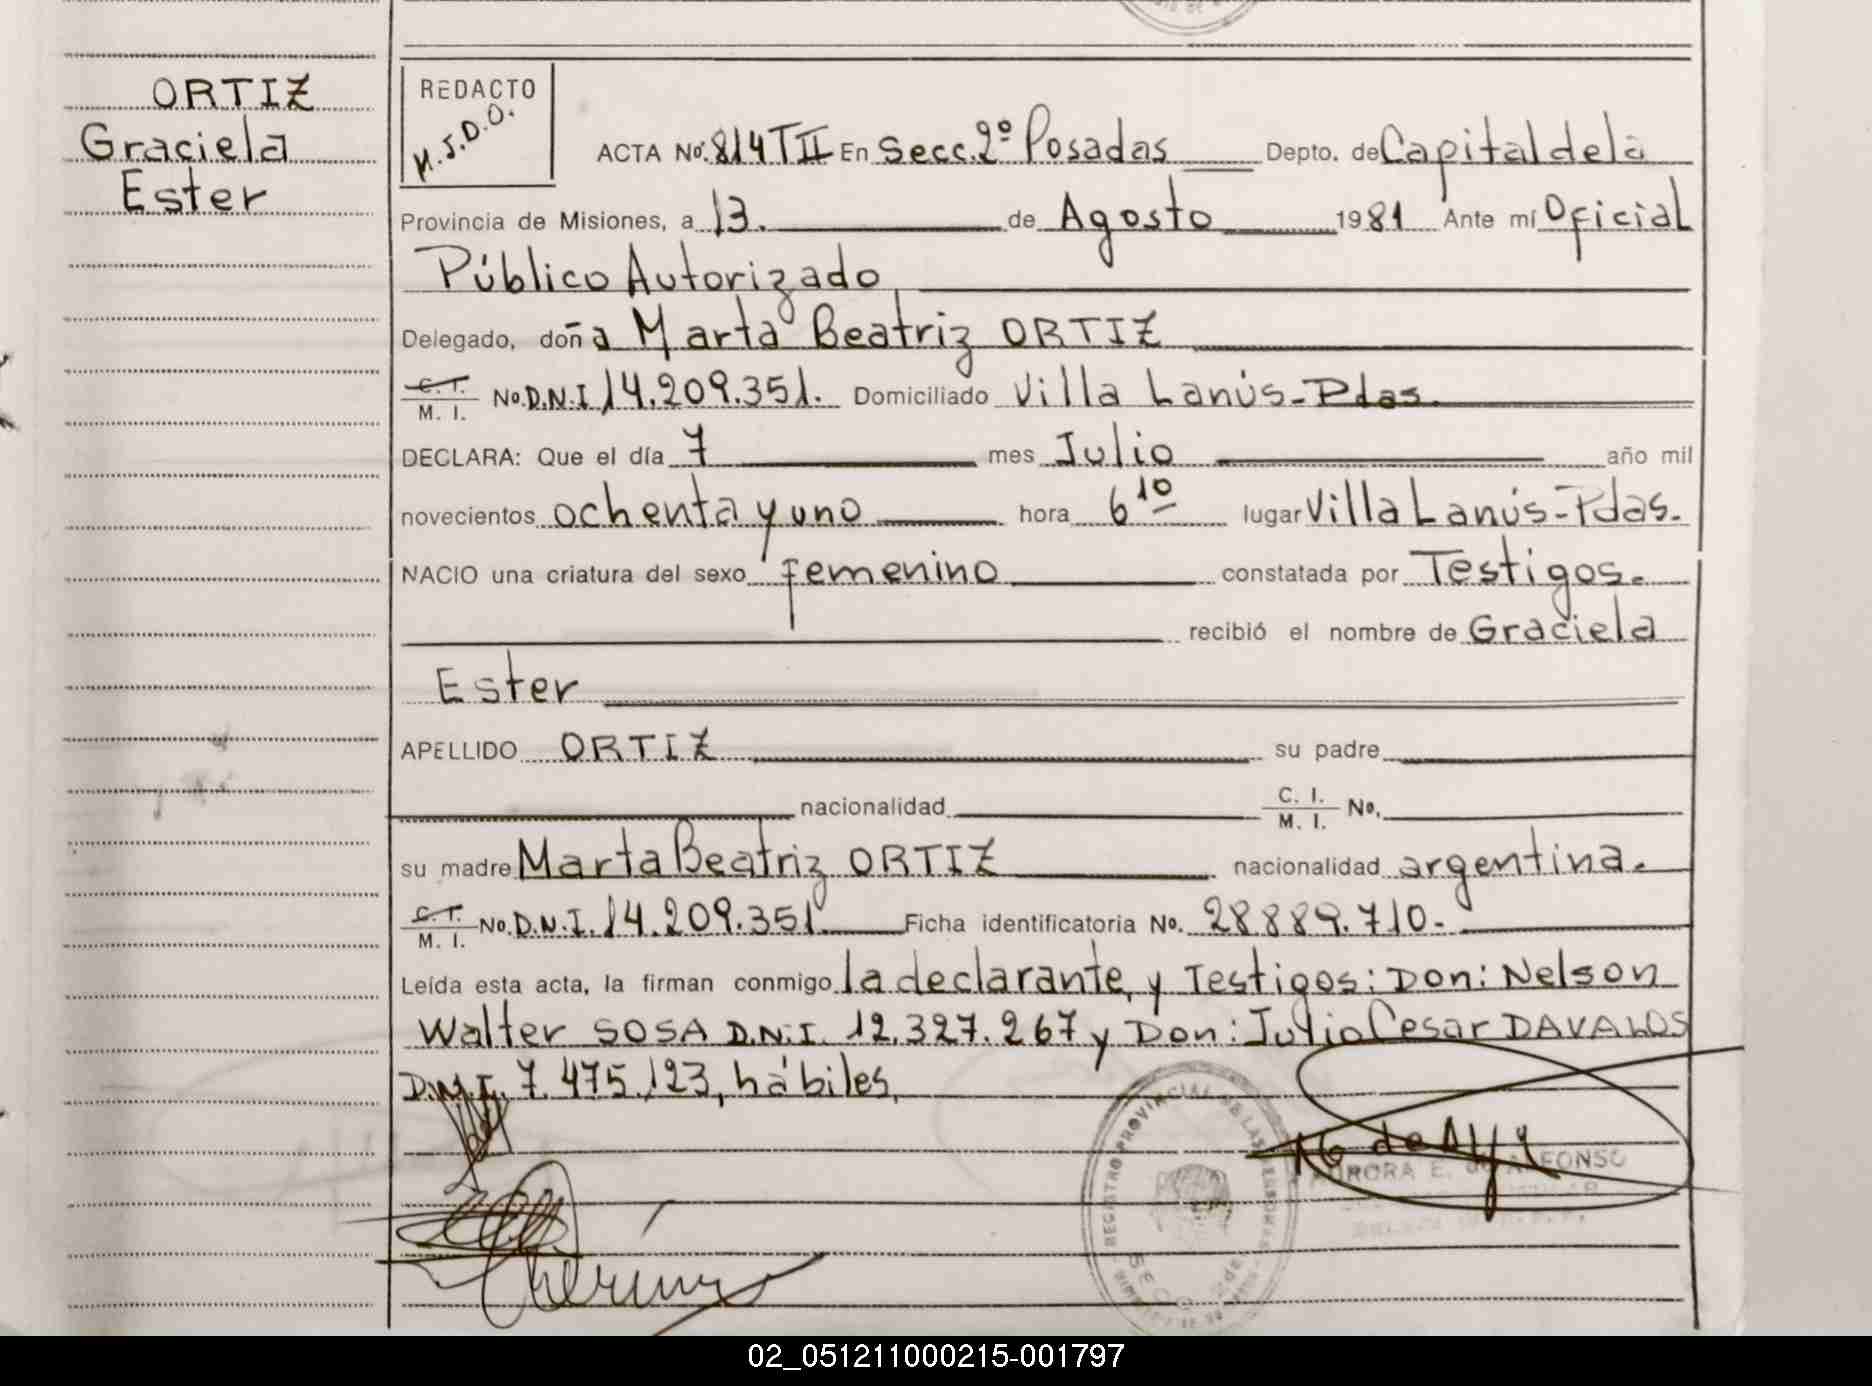 ORTIZ
Graciela
Ester
REDACTO
M.J.D.O.
ACTA No. 814 TII En Secc. 2º Posadas Depto. de Capital de la
Provincia de Misiones, a 13. de Agosto 1981 Ante mí Oficial
Público Autorizado
Delegado, doña Marta Beatriz ORTIZ
C. I. / M. I. No. D.N.I 14.209.351. Domiciliado Villa Lanús-Pdas.
DECLARA: Que el día 7 mes Julio año mil
novecientos ochenta y uno hora 6 10 lugar Villa Lanús-Pdas.
NACIO una criatura del sexo femenino constatada por Testigos.
recibió el nombre de Graciela
Ester
APELLIDO ORTIZ su padre
nacionalidad C. I. / M. I. No.
su madre Marta Beatriz ORTIZ nacionalidad argentina.
C. I. / M. I. No. D.N.I. 14.209.351 Ficha identificatoria No. 28889.710-
Leída esta acta, la firman conmigo la declarante, y Testigos: Don: Nelson
Walter SOSA D.N.I. 12.327.267 y Don: Julio Cesar DAVALOS
D.N.I. 7.475.123, hábiles.
REGISTRO PROVINCIAL DE LAS PERSONAS
E. de ALFONSO
02_051211000215-001797